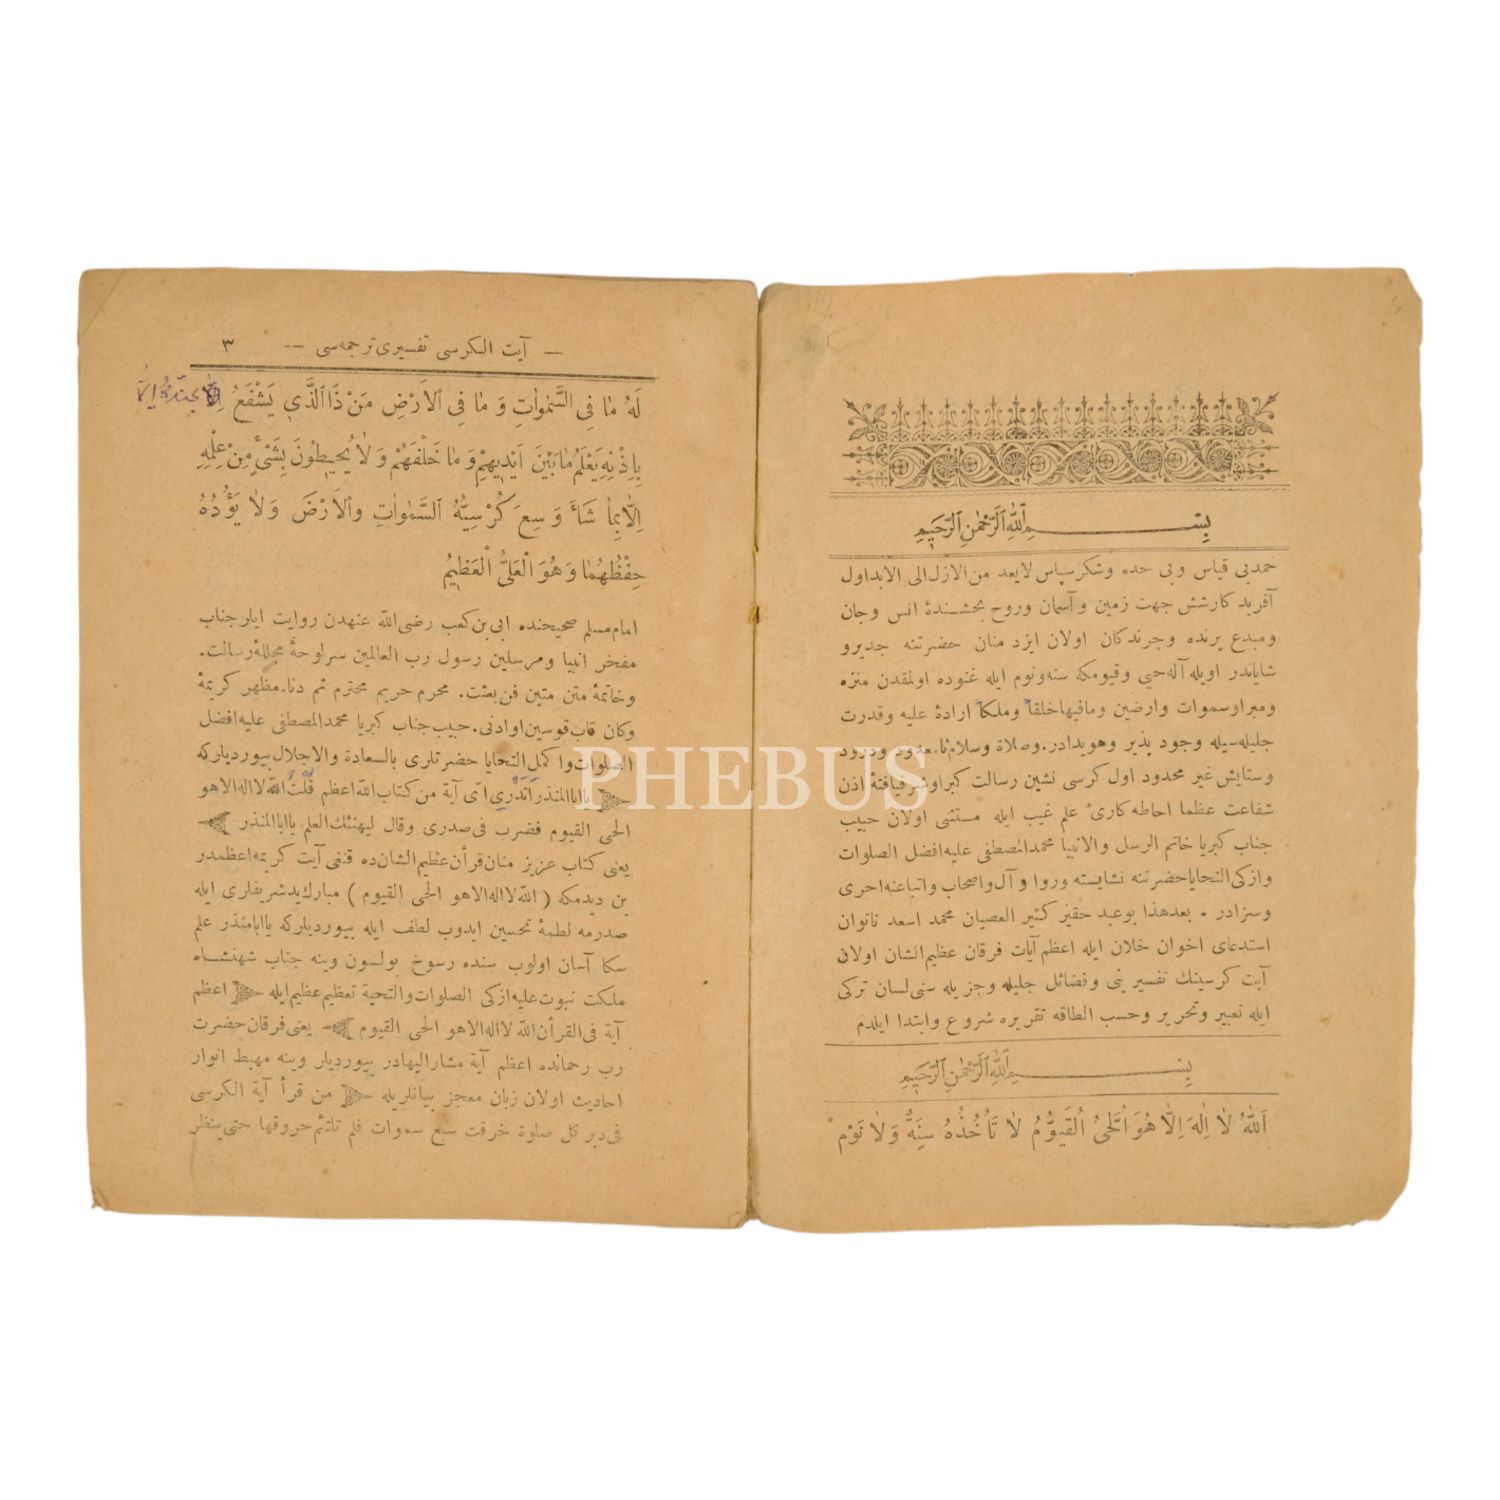 بِسْمِ اللهِ الرَّحْمٰنِ الرَّحِيمِ
حمد بی قیاس وبی حده وشکر سپاس لایعد من الازل الی الابد اول
آفریدکارشش جهت زمین و آسمان وروح بخشندۀ انس وجان
ومبدع پرنده وچرندکان اولان ایزد منان حضرتنه جدیرو
شایاندر اویله آله حی وقیومکه سنه ونوم ایله غنوده اولمقدن منزه
ومبرا وسموات وارضین ومافیها خلقاً وملکاً ارادۀ علیه وقدرت
جلیله سیله وجود پذیر وهویدادر. وصلاة وسلام نامعدود ودرود
وستایش غیر محدود اول کرسی نشین رسالت کبرا وشرفیافتۀ اذن
شفاعت عظما احاطه کاریٔ علم غیب ایله مستثنی اولان حبیب
جناب کبریا خاتم الرسل والانبیا محمد المصطفی علیه افضل الصلوات
وازکی التحایا حضرتنه نشایسته وروا و آل واصحاب واتباعنه احری
وسزادر . بعد هذا بو عبد حقیر کثیر العصیان محمد اسعد ناتوان
استدعای اخوان خلان ایله اعظم آیات فرقان عظیم الشان اولان
آیت کرسینك تفسیرینی وفضائل جلیله وجزیله سنی لسان ترکی
ایله تعبیر وتحریر وحسب الطاقه تقریره شروع وابتدا ایلدم
بِسْمِ اللهِ الرَّحْمٰنِ الرَّحِيمِ
اَللهُ لَا اِلٰهَ اِلَّا هُوَ اَلْحَيُّ الْقَيُّومُ لَا تَأْخُذُهُ سِنَةٌ وَلَا نَوْمٌ
— آیت الکرسی تفسیری ترجمه سی — ٣
لَهُ مَا فِي السَّمٰوَاتِ وَ مَا فِي الْاَرْضِ مَنْ ذَا الَّذِي يَشْفَعُ عِنْدَهُ اِلَّا
بِاِذْنِهِ يَعْلَمُ مَا بَيْنَ اَيْدِيهِمْ وَ مَا خَلْفَهُمْ وَ لَا يُحِيطُونَ بِشَيْءٍ مِنْ عِلْمِهِ
اِلَّا بِمَا شَاءَ وَسِعَ كُرْسِيُّهُ السَّمٰوَاتِ وَالْاَرْضَ وَلَا يَؤُدُهُ
حِفْظُهُمَا وَهُوَ الْعَلِيُّ الْعَظِيمُ
امام مسلم صحیحنده ابی بن کعب رضی الله عنهدن روایت ایلر جناب
مفخر انبیا ومرسلین رسول رب العالمین سرلوحۀ مجلۀ رسالت.
وخاتمۀ متن متین فن بعثت. محرم حریم محترم ثم دنا. مظهر کریمۀ
وکان قاب قوسین اوادنی. حبیب جناب کبریا محمد المصطفی علیه افضل
الصلوات واکمل التحایا حضرتلری بالسعادة والاجلال بیوردیلرکه
یاابا المنذر اَتَدْرِي ای آیة من کتاب الله اعظم قُلْتُ الله لا اله الا هو
الحی القیوم فضرب فی صدری وقال لیهنئك العلم یاابا المنذر
یعنی کتاب عزیز منان قرآن عظیم الشانده قنغی آیت کریمه اعظمدر
بن دیدمکه ( الله لا اله الا هو الحی القیوم ) مبارك ید شریفلری ایله
صدرمه لطمۀ تحسین ایدوب لطف ایله بیوردیلرکه یاابا منذر علم
سکا آسان اولوب سنده رسوخ بولسون وینه جناب شهنشاه
ملکت نبوت علیه ازکی الصلوات والتحیة تعظیم عظیم ایله اعظم
آیة فی القرأن الله لا اله الا هو الحی القیوم یعنی فرقان حضرت
رب رحمانده اعظم آیة مشار الیهادر بیوردیلر وینه مهبط انوار
احادیث اولان زبان معجز بیانلریله من قرأ آیة الکرسی
فی دبر کل صلوة خرقت سبع سموات فلم تلتئم خروقها حتی ینظر
PHEBUS